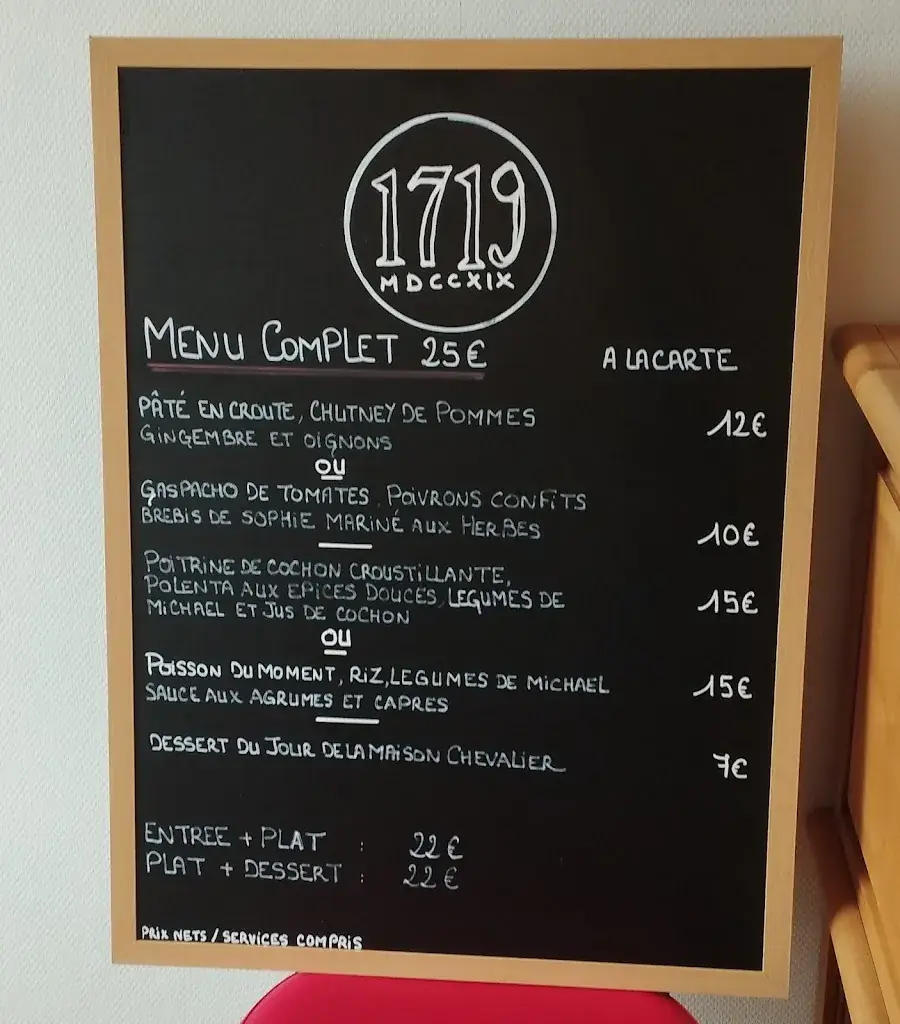 1719
MDCCXIX
MENU COMPLET 25€
A LA CARTE
PÂTÉ EN CROUTE, CHUTNEY DE POMMES
GINGEMBRE ET OIGNONS
12€
OU
GASPACHO DE TOMATES, POIVRONS CONFITS
BREBIS DE SOPHIE MARINÉ AUX HERBES
10€
POITRINE DE COCHON CROUSTILLANTE,
POLENTA AUX EPICES DOUCES, LEGUMES DE
MICHAEL ET JUS DE COCHON
15€
OU
POISSON DU MOMENT, RIZ, LEGUMES DE MICHAEL
SAUCE AUX AGRUMES ET CAPRES
15€
DESSERT DU JOUR DE LA MAISON CHEVALIER
7€
ENTREE + PLAT : 22€
PLAT + DESSERT : 22€
PRIX NETS / SERVICES COMPRIS